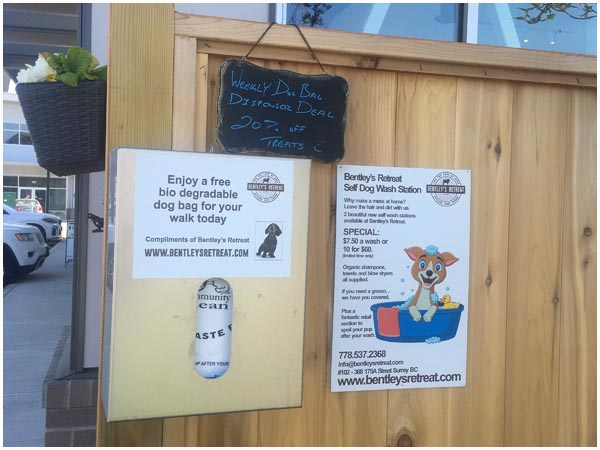 WEEKLY DOG BAG
DISPENSER DEAL
20% OFF
TREATS
Enjoy a free
bio degradable
dog bag for your
walk today
BENTLEY'S RETREAT
Compliments of Bentley's Retreat
WWW.BENTLEYSRETREAT.COM
mmunity
ean
ASTE
UP AFTER YOUR
Bentley's Retreat
Self Dog Wash Station
BENTLEY'S RETREAT
Why make a mess at home?
Leave the hair and dirt with us.
2 beautiful new self wash stations
available at Bentley's Retreat.
SPECIAL:
$7.50 a wash or
10 for $60.
(limited time only)
Organic shampoos,
towels and blow dryers
all supplied.
If you need a groom, -
we have you covered.
Plus a
fantastic retail
section to
spoil your pup
after your wash.
778.537.2368
info@bentleysretreat.com
#102 - 368 175A Street Surrey BC
www.bentleysretreat.com